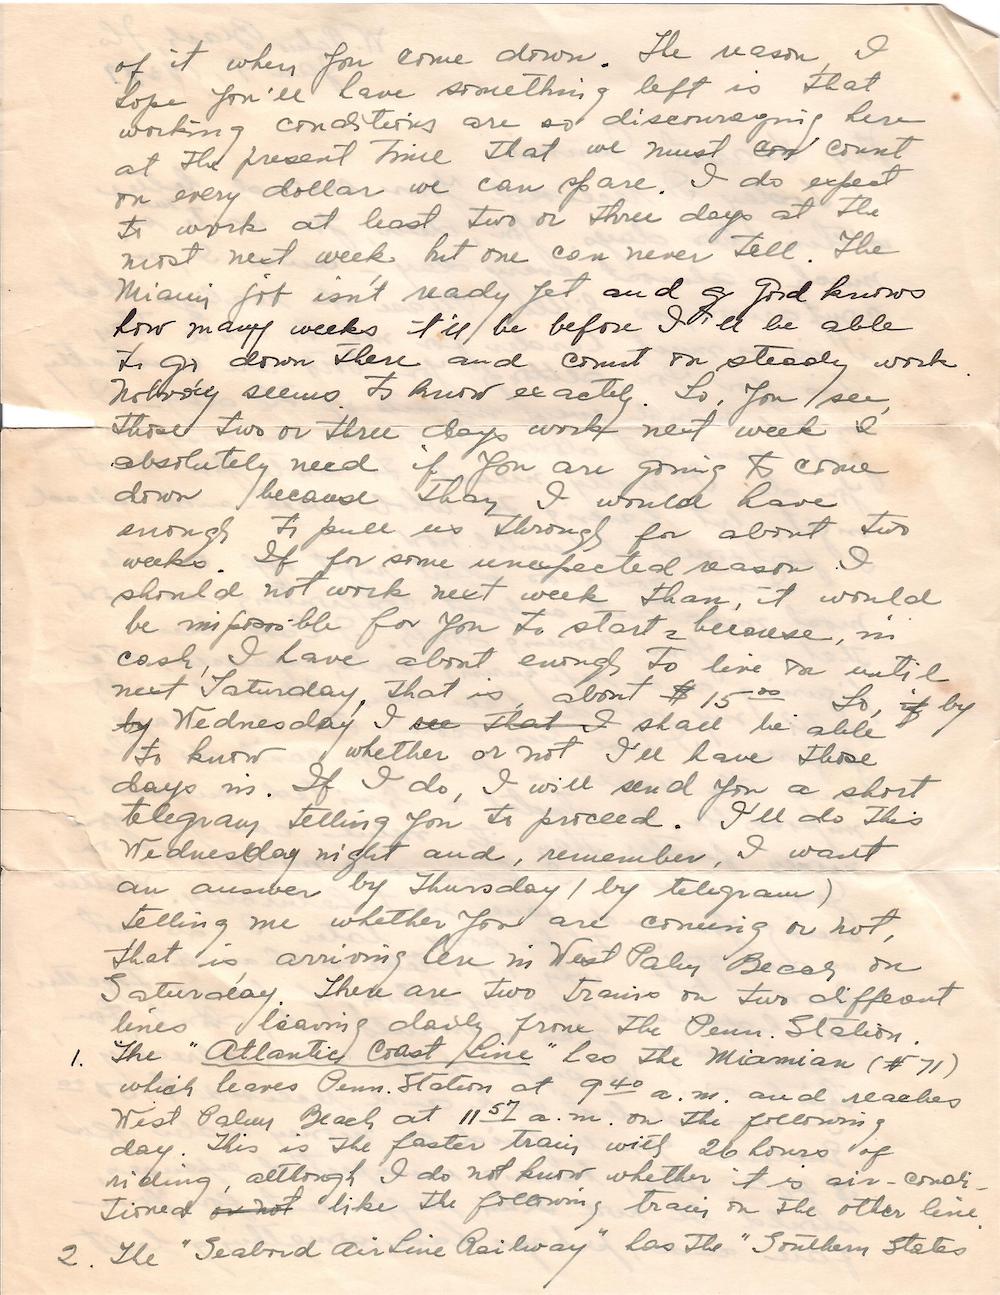 of it when you come down. The reason, I
hope you'll have something left is that
working conditions are so discouraging here
at the present time that we must con' count
on every dollar we can spare. I do expect
to work at least two or three days at the
most next week but one can never tell. The
Miami job isn't ready yet and g God knows
how many weeks it'll be before I'll be able
to go down there and count on steady work.
Nobody seems to know exactly. So, you see,
those two or three days work next week I
absolutely need if you are going to come
down because than I would have
enough to pull us through for about two
weeks. If for some unexpected reason I
should not work next week than, it would
be impossible for you to start - because, in
cash, I have about enough to live on until
next Saturday, that is, about $15.00 So, if by
by Wednesday I see that I shall be able
to know whether or not I'll have those
days in. If I do, I will send you a short
telegram telling you to proceed. I'll do this
Wednesday night and, remember, I want
an answer by Thursday (by telegram)
telling me whether you are coming or not,
that is, arriving here in West Palm Beach on
Saturday. There are two trains on two different
lines leaving daily from the Penn. Station.
1. The "Atlantic Coast Line" has the Miamian (#71)
which leaves Penn. Station at 9 40 a.m. and reaches
West Palm Beach at 11 57 a.m. on the following
day. This is the faster train with 26 hours of
riding, although I do not know whether it is air-condi-
tioned or not like the following train on the other line.
2. The "Seabord Air Line Railway" has the "Southern States